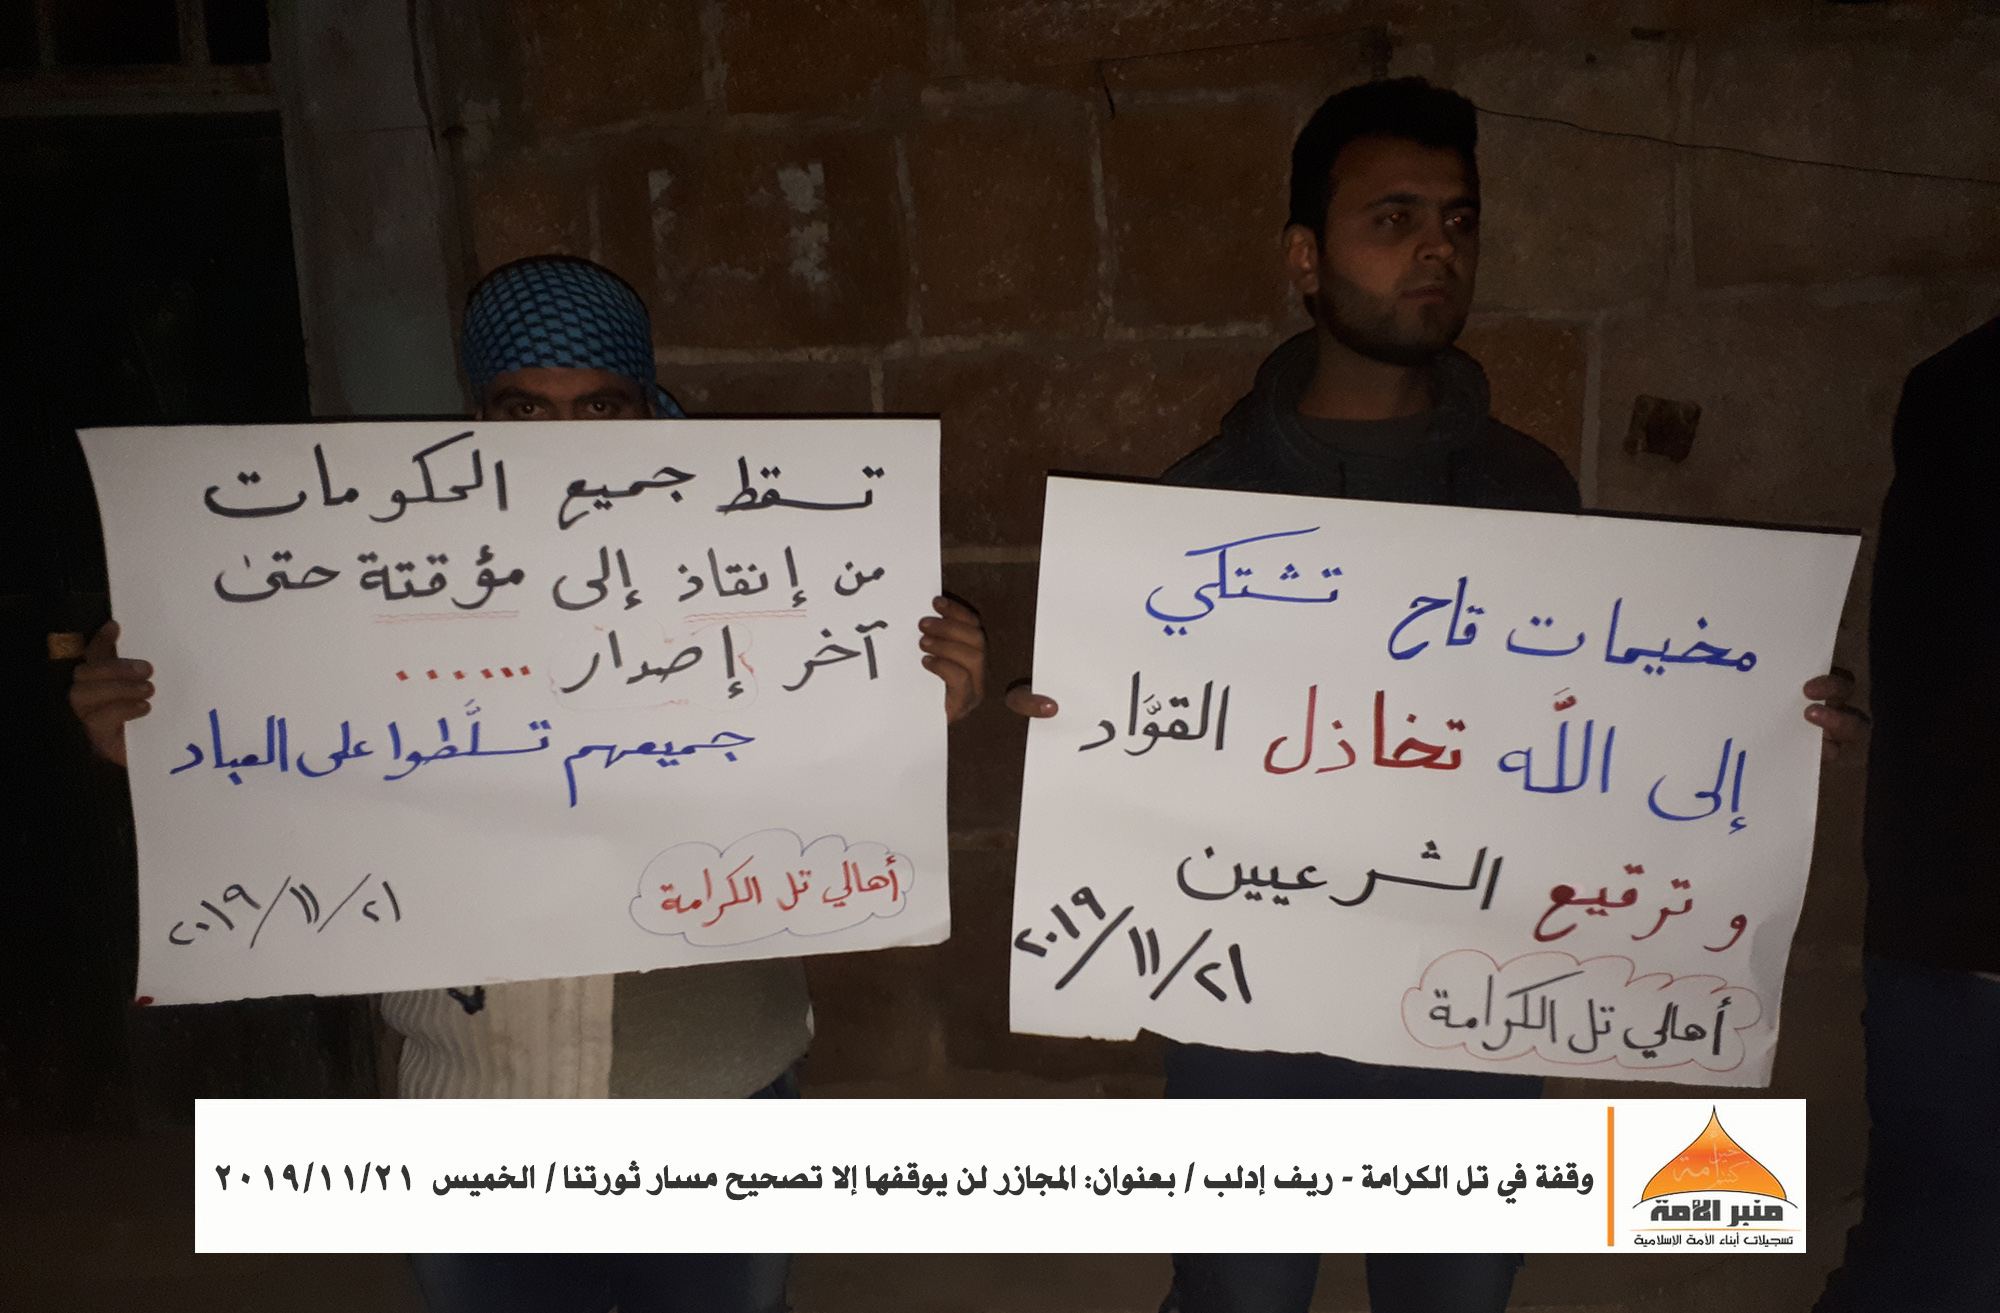 تسقط جميع الحكومات
من إنقاذ إلى مؤقتة حتى
آخر إصدار ......
جميعهم تسلَّطوا على العباد
أهالي تل الكرامة
٢٠١٩/١١/٢١
مخيمات قاح تشتكي
إلى اللَّه تخاذل القوَّاد
و ترقيع الشرعيين
٢٠١٩/١١/٢١
أهالي تل الكرامة
وقفة في تل الكرامة - ريف إدلب / بعنوان: المجازر لن يوقفها إلا تصحيح مسار ثورتنا / الخميس ٢٠١٩/١١/٢١
منبر الأمة
تسجيلات أبناء الأمة الإسلامية